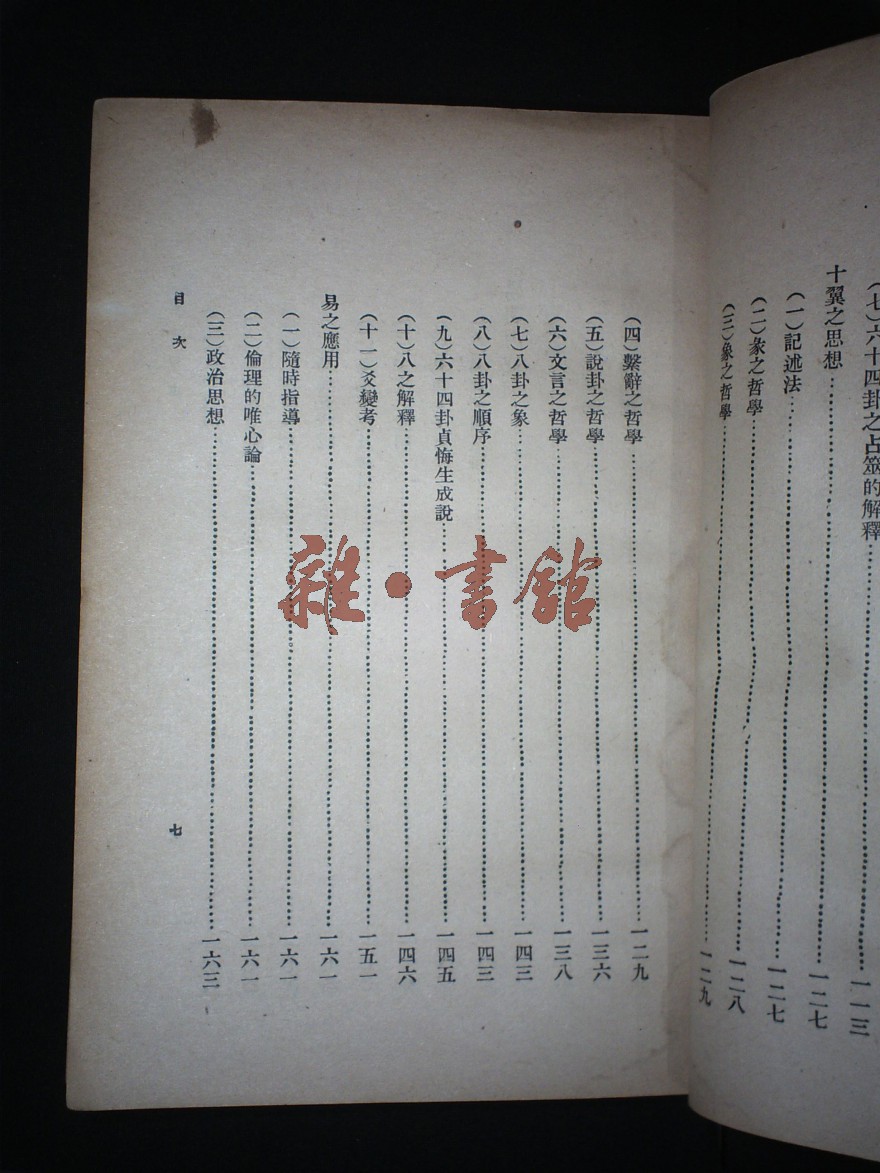 （七）六十四卦之占筮的解釋……一一三
十翼之思想……一二七
（一）記述法……一二七
（二）彖之哲學……一二八
（三）象之哲學……一二九
（四）繫辭之哲學……一二九
（五）說卦之哲學……一三六
（六）文言之哲學……一三八
（七）八卦之象……一四三
（八）八卦之順序……一四三
（九）六十四卦貞悔生成說……一四五
（十）八之解釋……一四六
（十一）爻變考……一五一
易之應用……一六一
（一）隨時指導……一六一
（二）倫理的唯心論……一六一
（三）政治思想……一六三
目次
七
雜·書館